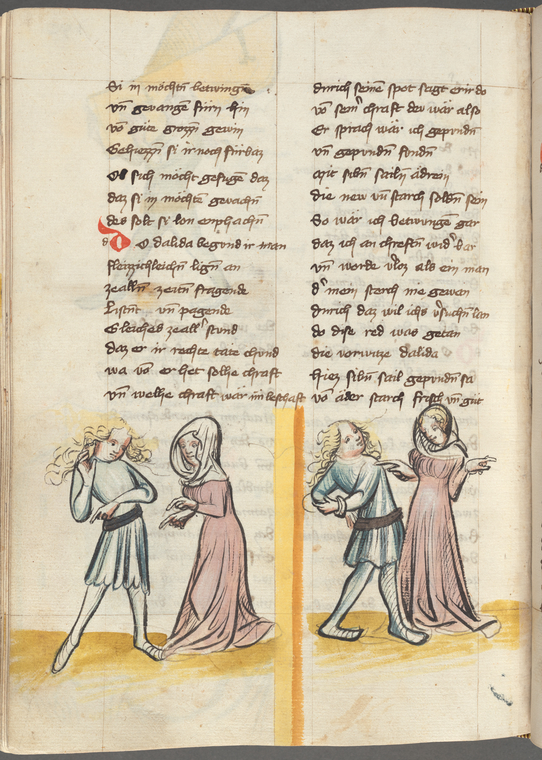 Si in möchtn̄ betwingn̄
vn̄ gevangē fürn hin
vō güte grozzn̄ gewin
Gehiezzn̄ si ir noch für daz
Ob sich möcht gefugen daz
daz si in möchtē gevachn̄
des solt si lon enphachn̄
Do dalida begvnd ir man
fleizichleichn̄ lign̄ an
ze alln̄ zeitn̄ fragende
Listn̄t vn̄ pagende
Gleiches ze allˢ stund
daz er ir rechte tate chvnd
wa vō er het solhe chraft
vn̄ welhe chraft wär im behaft
durich seinē spot sagt er ir do
vō senˢ chraft der wär also
Er sprach wär ich gepvndn̄
vn̄ gepvndn̄ fvndn̄
mit sibn̄ sailn̄ ädrein
die new vn̄ starch soldn̄ sein
So wär ich betwungen gar
daz ich an chreftn̄ wurdˢ bar
vn̄ worde plöz als ein man
dˢ mein sterch nie gewan
durich daz wil ichs vˢsuchn̄ lan
do dise red was getan
die vorwitze dalida
hiez sibn̄ sail gepvndn̄ sa
vō äder starch frisch vn̄ gut